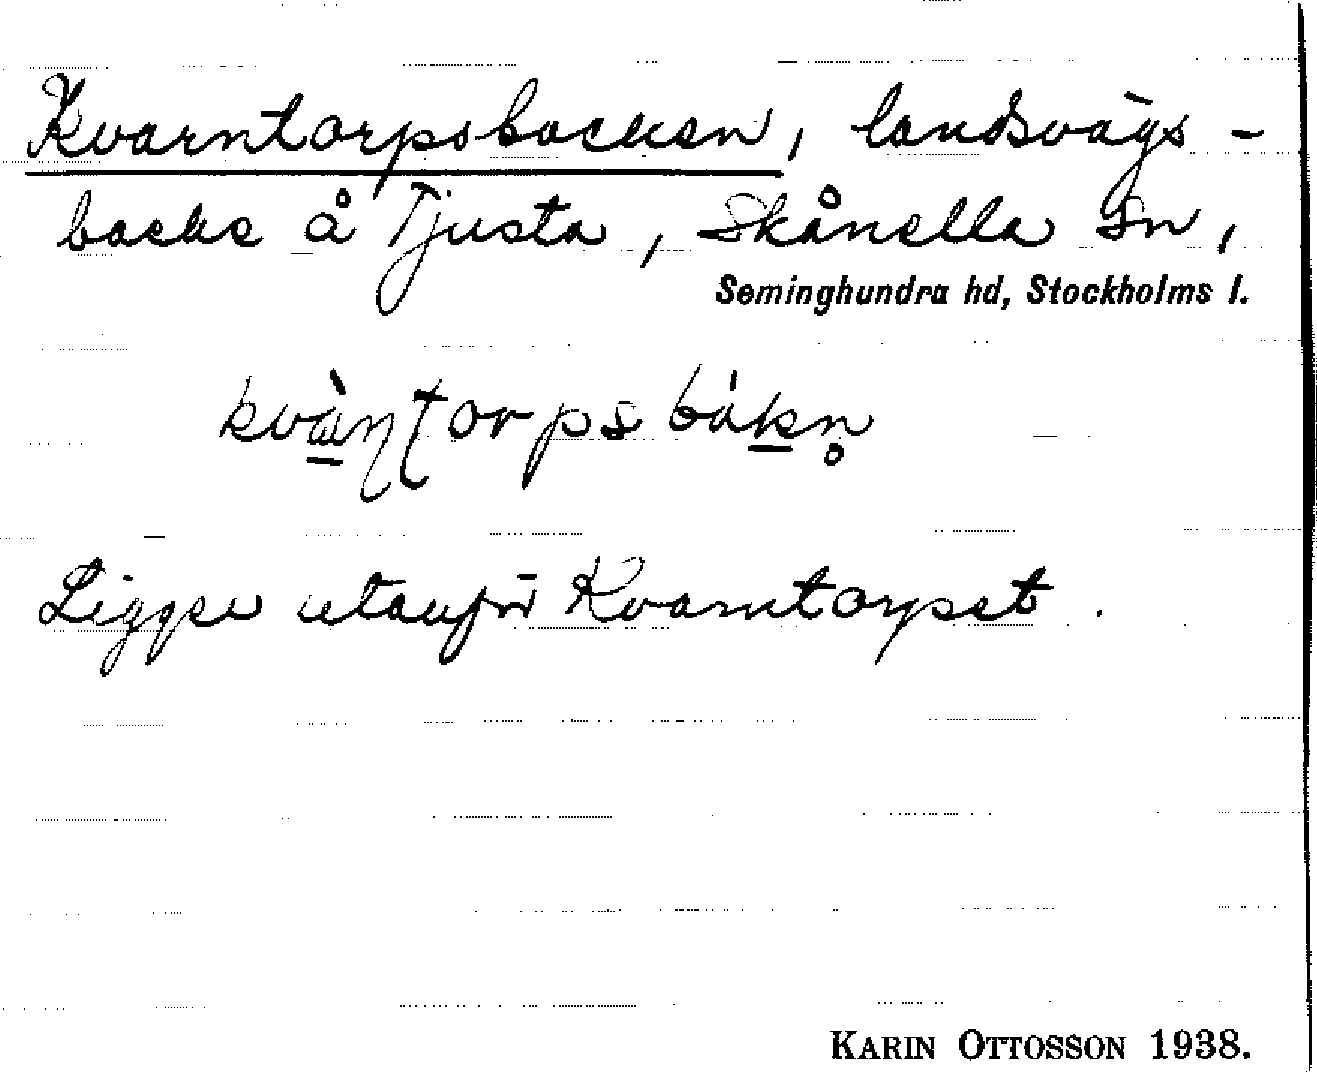 Kvarntorpsbacken, landsvägs-
backe å Tjusta, Skånella sn,
Seminghundra hd, Stockholms l.
kvàṇtorpsbákn̥
Ligger utanför Kvarntorpet.
KARIN OTTOSSON 1938.